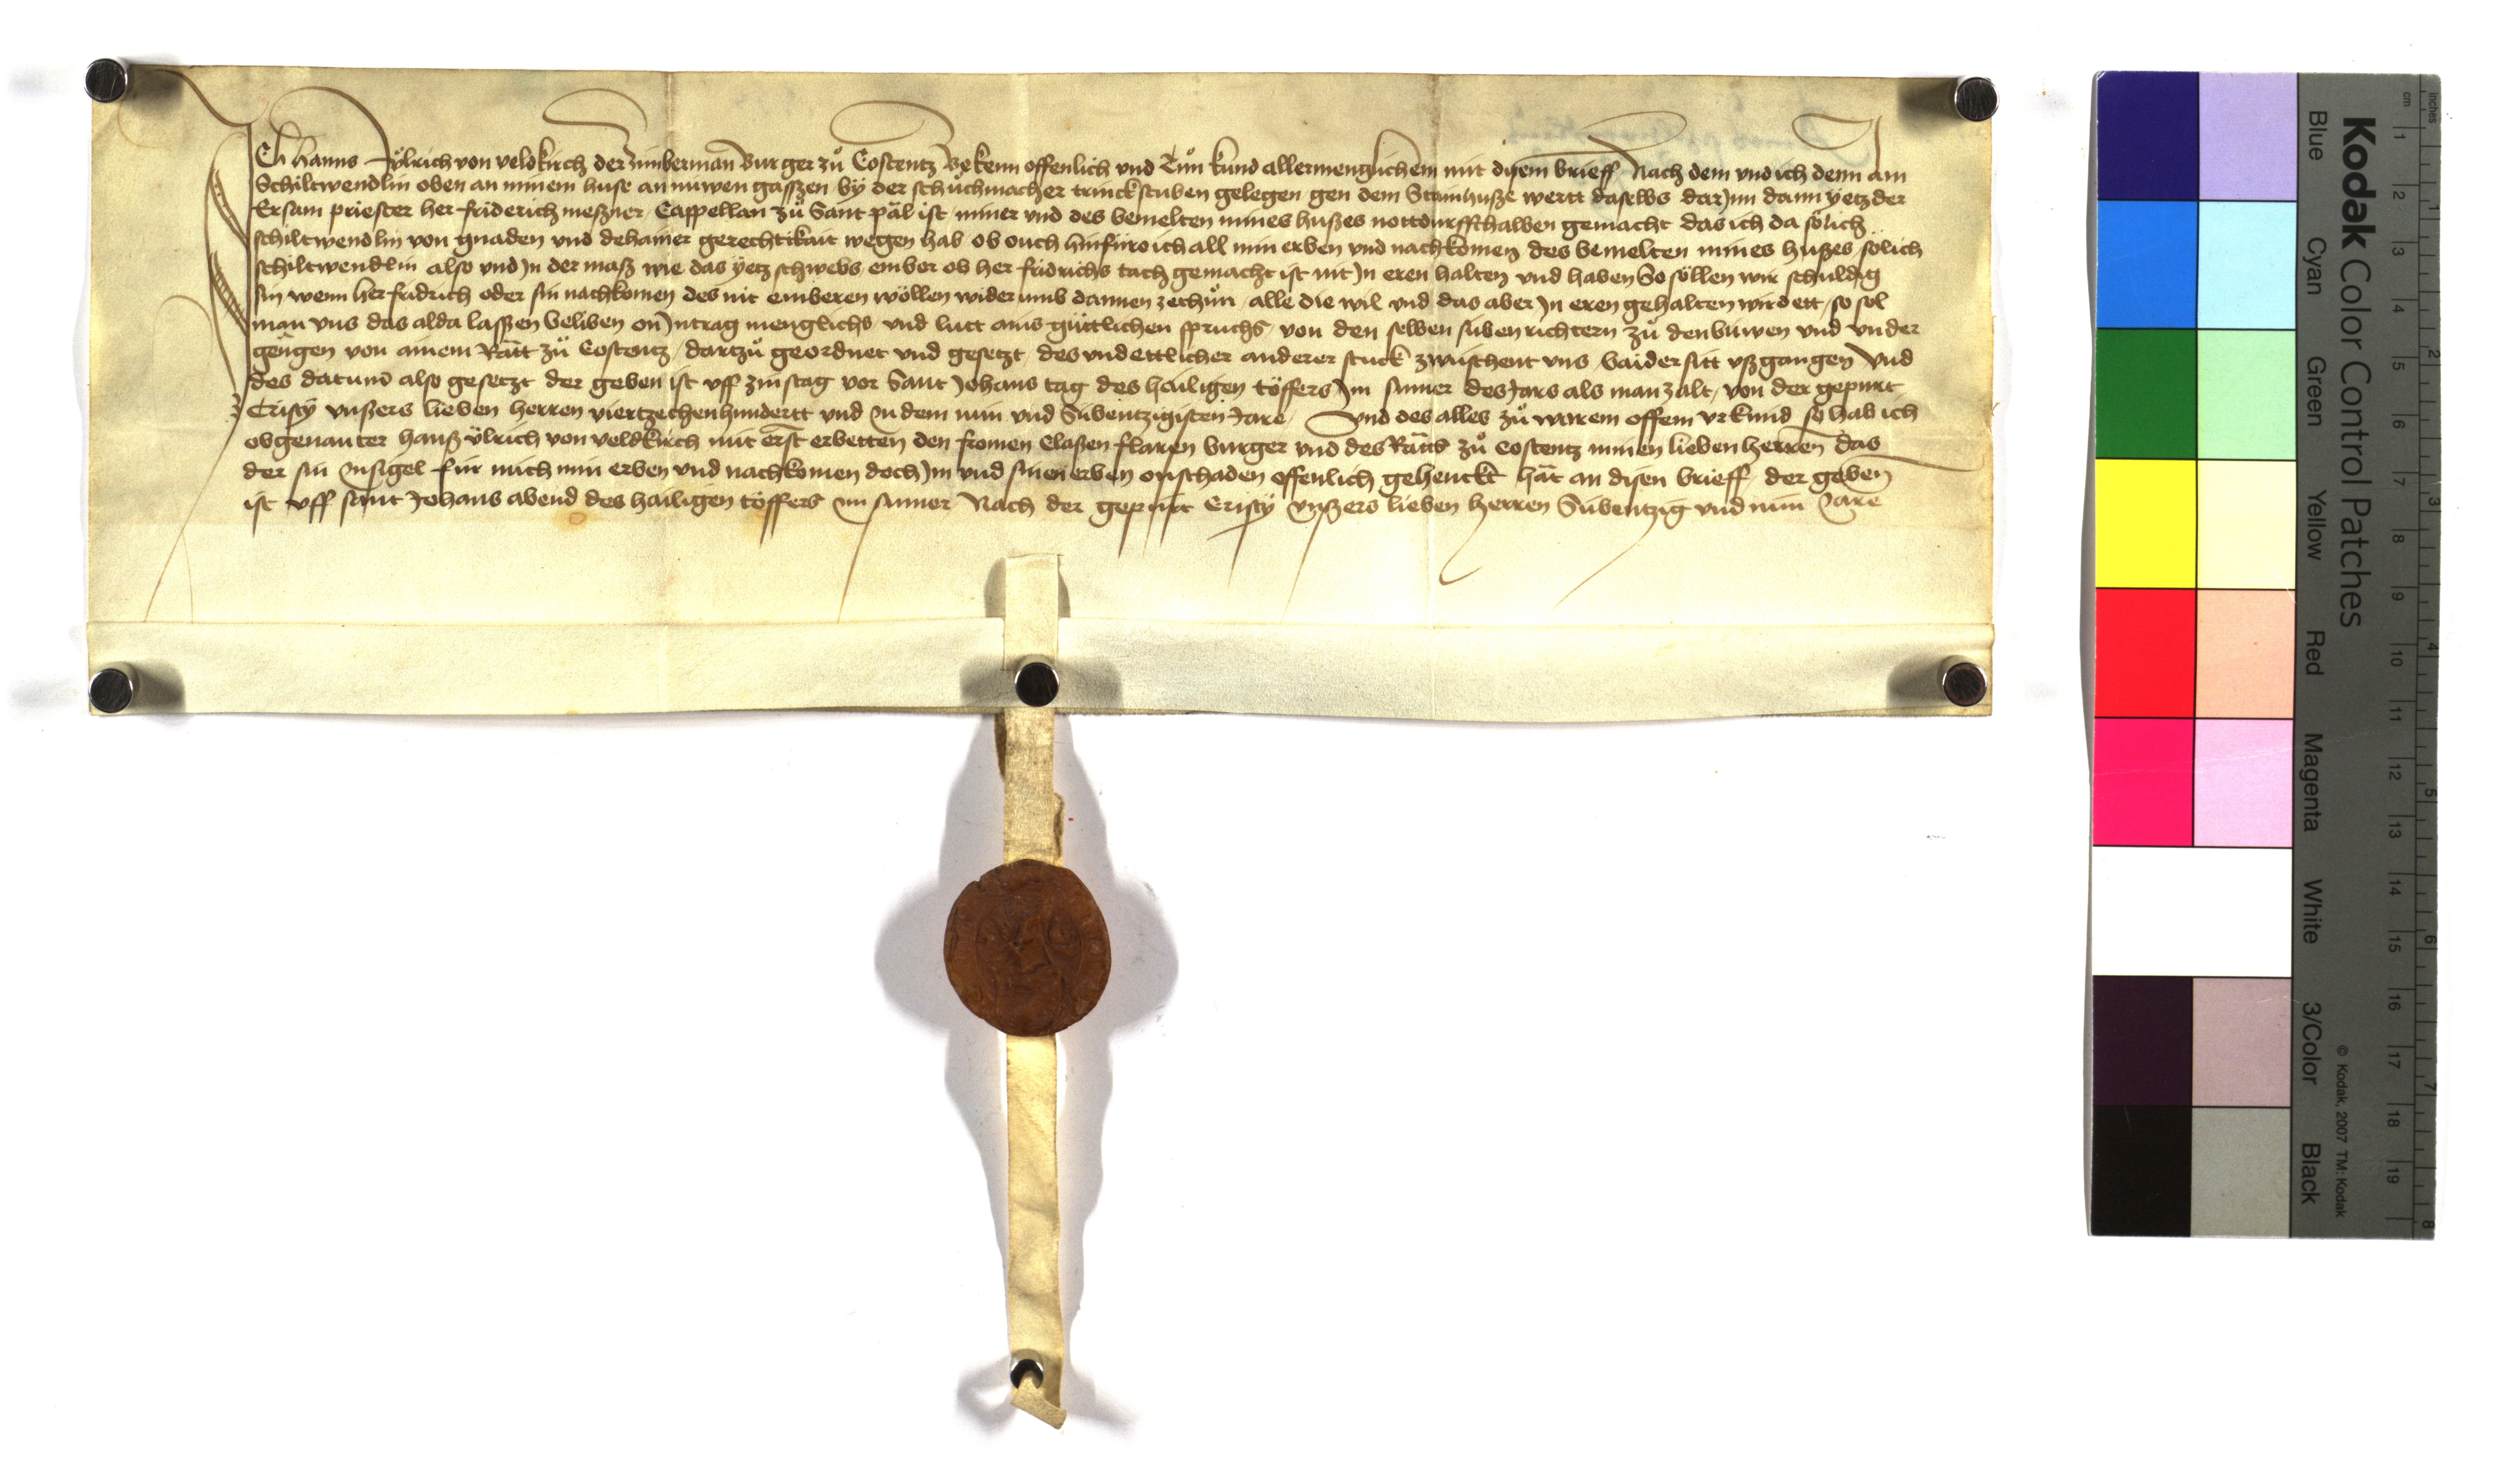 Ich Hanns Ülrich von veldkirch der zimberman Burger zů Costentz Bekenn offenlich und Tůn kund allermenglichem mit disem brieff Nach dem vnd ich denn am
Schiltwendlin oben an minem huse an nüwen gassen by der schůchmacher trinckstuben gelegen gen dem Stainhusße wertt daselbs dar Jnn dann yetz der
Ersam priester her friderich meßner Cappellan zů Sant pál ist miner vnd des bemelten mines hußes nottdurffthalben gemacht das ich da sölich
schiltwendlin von gnaden vnd dehainer gerechtikait wegen hab ob ouch hinfüro ich all min erben vnd nachkomen des bemelten mines hußes sölich
schiltwendlin also vnd Jn der maß wie das yetz schwebs embor ob her fridrichs tach gemacht ist nit Jn eren halten vnd haben So söllen wir schuldig
sin wenn her fridrich oder sin nachkomen des nit emberen wöllen widerumb dannen zethůn alle die wil vnd das aber Jn eren gehalten wirdett so sol
man vns das alda lassen beliben on Jntrag menglichs vnd lutt ains güttlichen spruchs von den selben siben richtern zů den büwen vnd vnder
gengen von ainem Rätt zů Costentz dartzů geordnet vnd gesetzt des vnd ettlicher anderer stuck zwüschent vns baider sitt vßgangen vnd
des datum also gesetzt der geben ist vff zinstag vor Sant Johans tag des hailigen töffers Jm sumer des Jars als man zalt von der gepurt
Cristy vnßers lieben herren viertzechenhundertt vnd Jn dem nün vnd Sübentzigisten Jare Vnd des alles zů warem offem vrkund so hab ich
obgenanter hanß ülrich von veldkirch mit erst erbetten den fromen Claßen flaren burger vnd des Räts zů Costentz minen lieben herren das
der sin Jnsigel für mich min erben vnd nachkomen doch Jm vnd sinen erben onschaden offenlich gehenckt hät an disen brieff der geben
ist vff sant Johans abend des hailigen töffers im sumer Nach der gepurt Cristy vnßers lieben herren Sübentzig vnd nün Jare
Kodak Color Control Patches
Blue Cyan Green Yellow Red Magenta White 3/Color Black
© Kodak, 2007 TM: Kodak
cm 1 2 3 4 5 6 7 8 9 10 11 12 13 14 15 16 17 18 19
inches 1 2 3 4 5 6 7 8